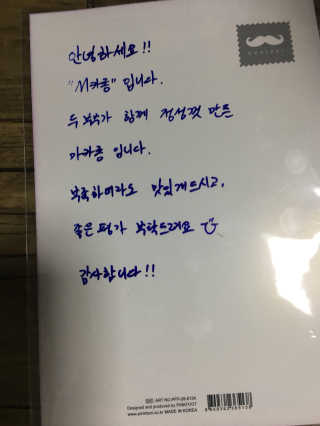 안녕하세요!!
"M카롱" 입니다.
두 부부가 함께 정성껏 만든
마카롱 입니다.
부족하더라도 맛있게드시고,
좋은평가 부탁드려요
감사합니다!!
MADE IN KOREA